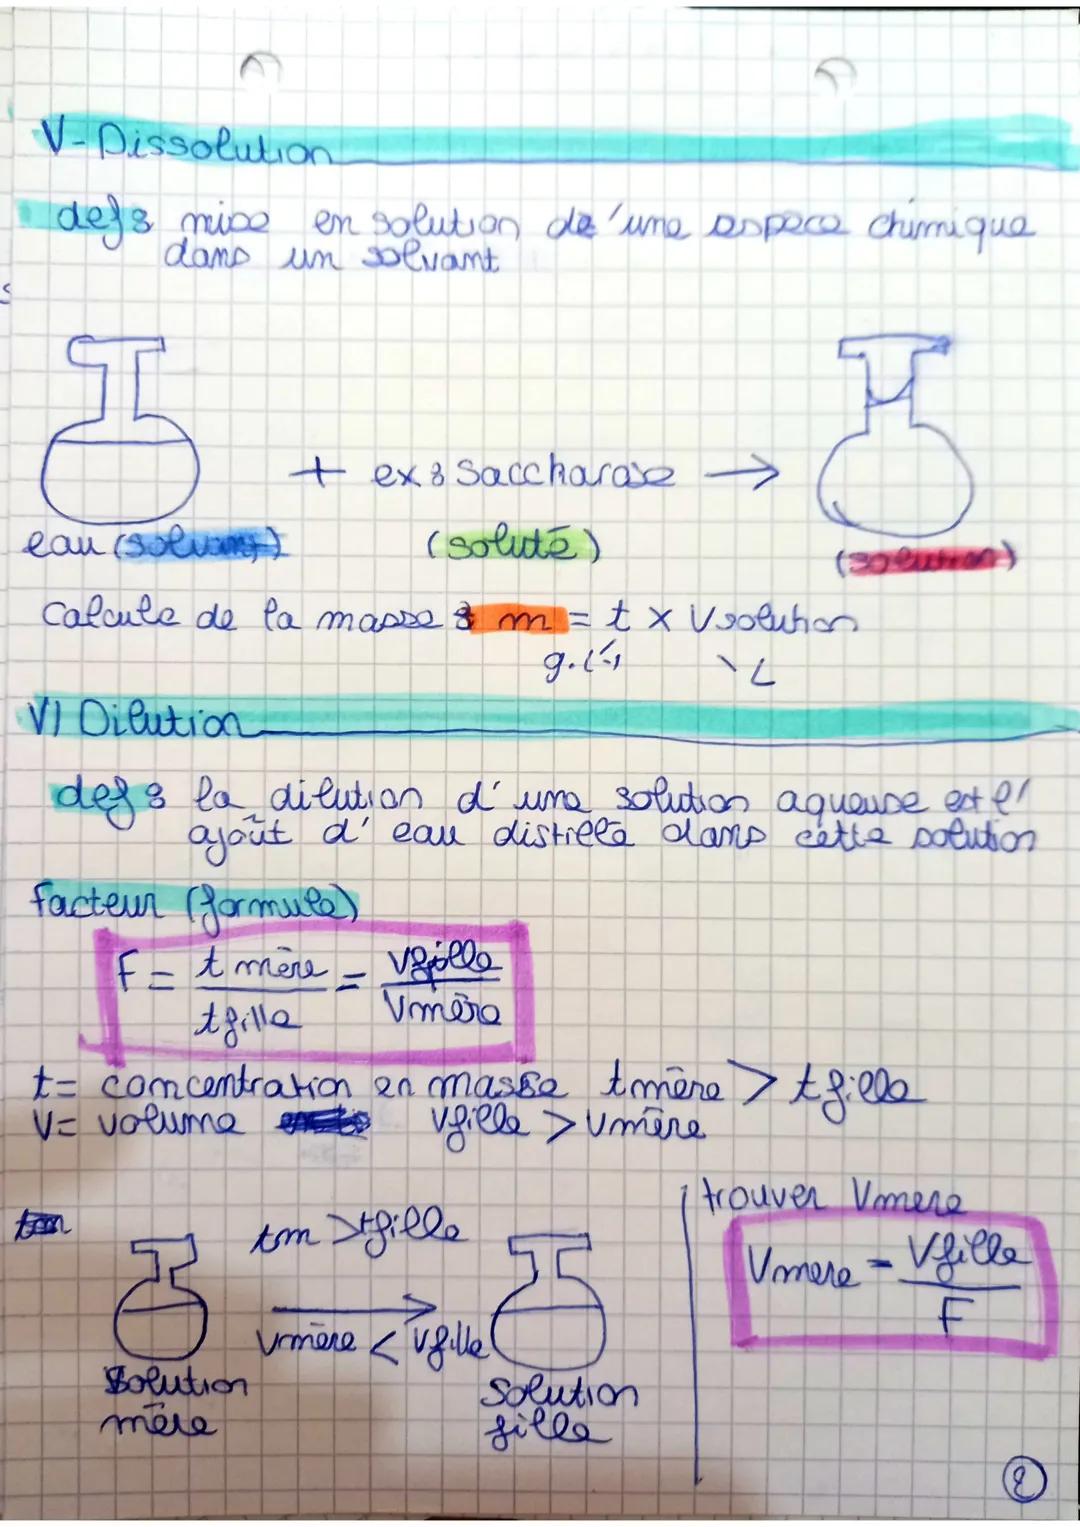 V-Dissolution
def: mise en solution de 'une espece chimique
dans un solvant
+ ex: Saccharose →
eau (solvant) (soluté) (solution)
Calcule de la masse : m = t x Vsolution
g.L-1 L
VI Dilution
def: la dilution d'une solution aqueuse est l'
ajoût d'eau distillé dans cette solution
facteur (formule)
F = t mère / t fille = Vfille / Vmère
t = concentration en masse tmère > tfille
V = volume Vfille > Vmère
tm > tfille
Vmère < Vfille
Solution
mère
Solution
fille
trouver Vmere
Vmere = Vfille / F
2